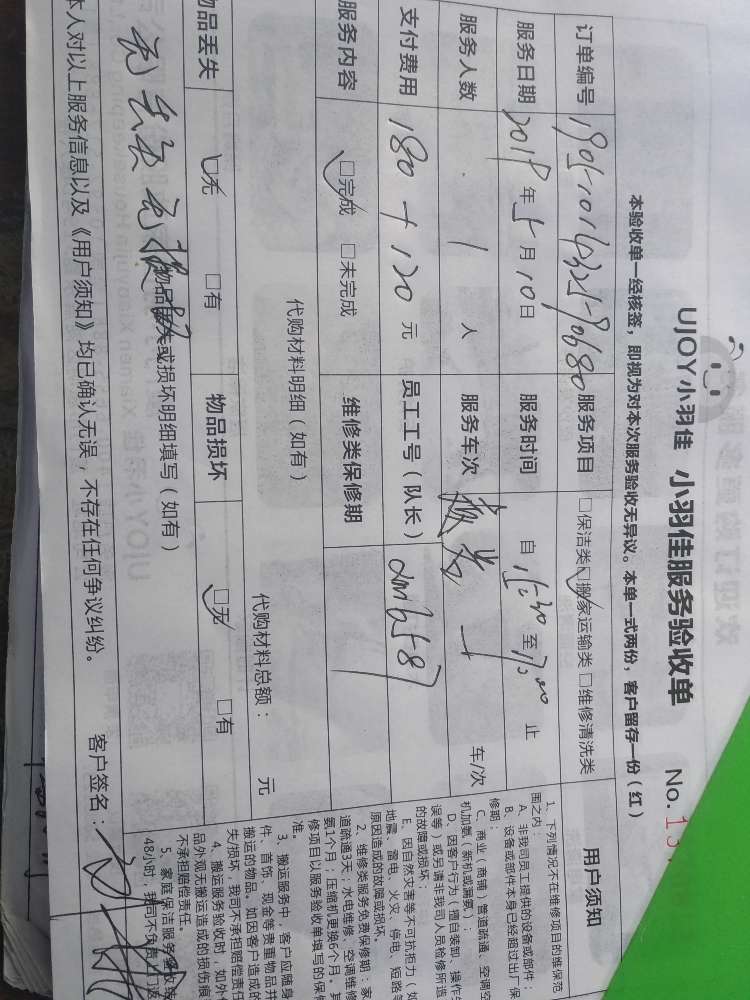 UJOY小羽佳 小羽佳服务验收单 No.
本验收单一经核签，即视为对本次服务验收无异议。本单一式两份，客户留存一份（红）
订单编号 服务项目 □保洁类 □搬家运输类 □维修清洗类
服务日期 年5月10日 服务时间 自15:30至17:00止
服务人数 1人 服务车次 车/次
支付费用 180+120元 员工工号（队长）
服务内容 □完成 □未完成 维修类保修期
代购材料明细（如有） 代购材料总额： 元
物品丢失 □无 □有 物品损坏 □无 □有
物品丢失或损坏明细填写（如有）
本人对以上服务信息以及《用户须知》均已确认无误，不存在任何争议纠纷。 客户签名：
用户须知
1、下列情况不在维修项目的维保范
围之内：
A、非我司员工提供的设备或部件；
B、设备或部件本身已经超过出厂保
修期；
C、商业（商铺）管道疏通、空调空
机加氨（新机或漏氨）；
D、因客户行为（擅自装卸、操作失
误等）或另请非我司人员检修所造
的故障或损坏；
E、因自然灾害等不可抗拒力（如
地震、雷电、火灾、停电、短路等
原因造成的故障或损坏。
2、维修类服务免费保修期：家
道疏通3天；水电维修、空调维修
氨1个月；压缩机更换6个月。其
修项目以服务验收单填写的保修
准。
3、搬运服务中，客户应随身
件、首饰、现金等贵重物品并
搬运的物品。如因客户造成的
失/损坏，我司不承担赔偿责任
4、搬运服务验收时，如外
品外观无搬运造成的损伤痕
不承担赔偿责任。
5、家庭保洁服务
48小时，我司不负责上门返